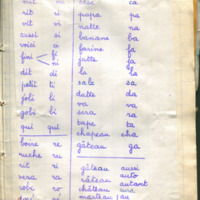 rit ri
vit vi
aussi si
voici ci
fini fi
ni
dit di
petit ti
joli li
gobi bi
qui qui
boire re
ruche re
rit ri
sera ra
robe ro
ca
papa pa
natte na
banane ba
farine fa
jatte ja
la la
sale sa
datte da
va va
sera ra
tape ta
chapeau cha
gâteau ga
gâteau aussi
râteau auto
château autant
marteau au